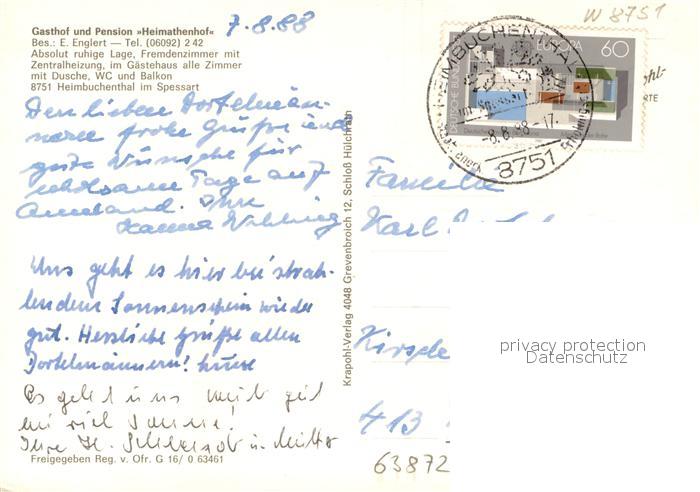 7.8.88
W 8751
Gasthof und Pension »Heimathenhof«
Bes.: E. Englert — Tel. (06092) 2 42
Absolut ruhige Lage, Fremdenzimmer mit
Zentralheizung, im Gästehaus alle Zimmer
mit Dusche, WC und Balkon
8751 Heimbuchenthal im Spessart
Den lieben Dortelmän-
nern frohe Grüße und
gute Wünsche für
erholsame Tage auf
Ameland. Ihre
Hanna
Uns geht es hier bei strah-
lendem Sonnenschein wieder
gut. Herzliche Grüße allen
Dortelmännern!
Es geht uns gut
viel Sonne!
Ihre H. u. Mutter
Freigegeben Reg. v. Ofr. G 16/0 63461
Krapohl-Verlag 4048 Grevenbroich 12, Schloß Hülchrath
HEIMBUCHENTHAL
im Spessart
-8.8.88-17
8751
EUROPA 60
DEUTSCHE BUNDES
Familie
Karl
413
63872
privacy protection
Datenschutz